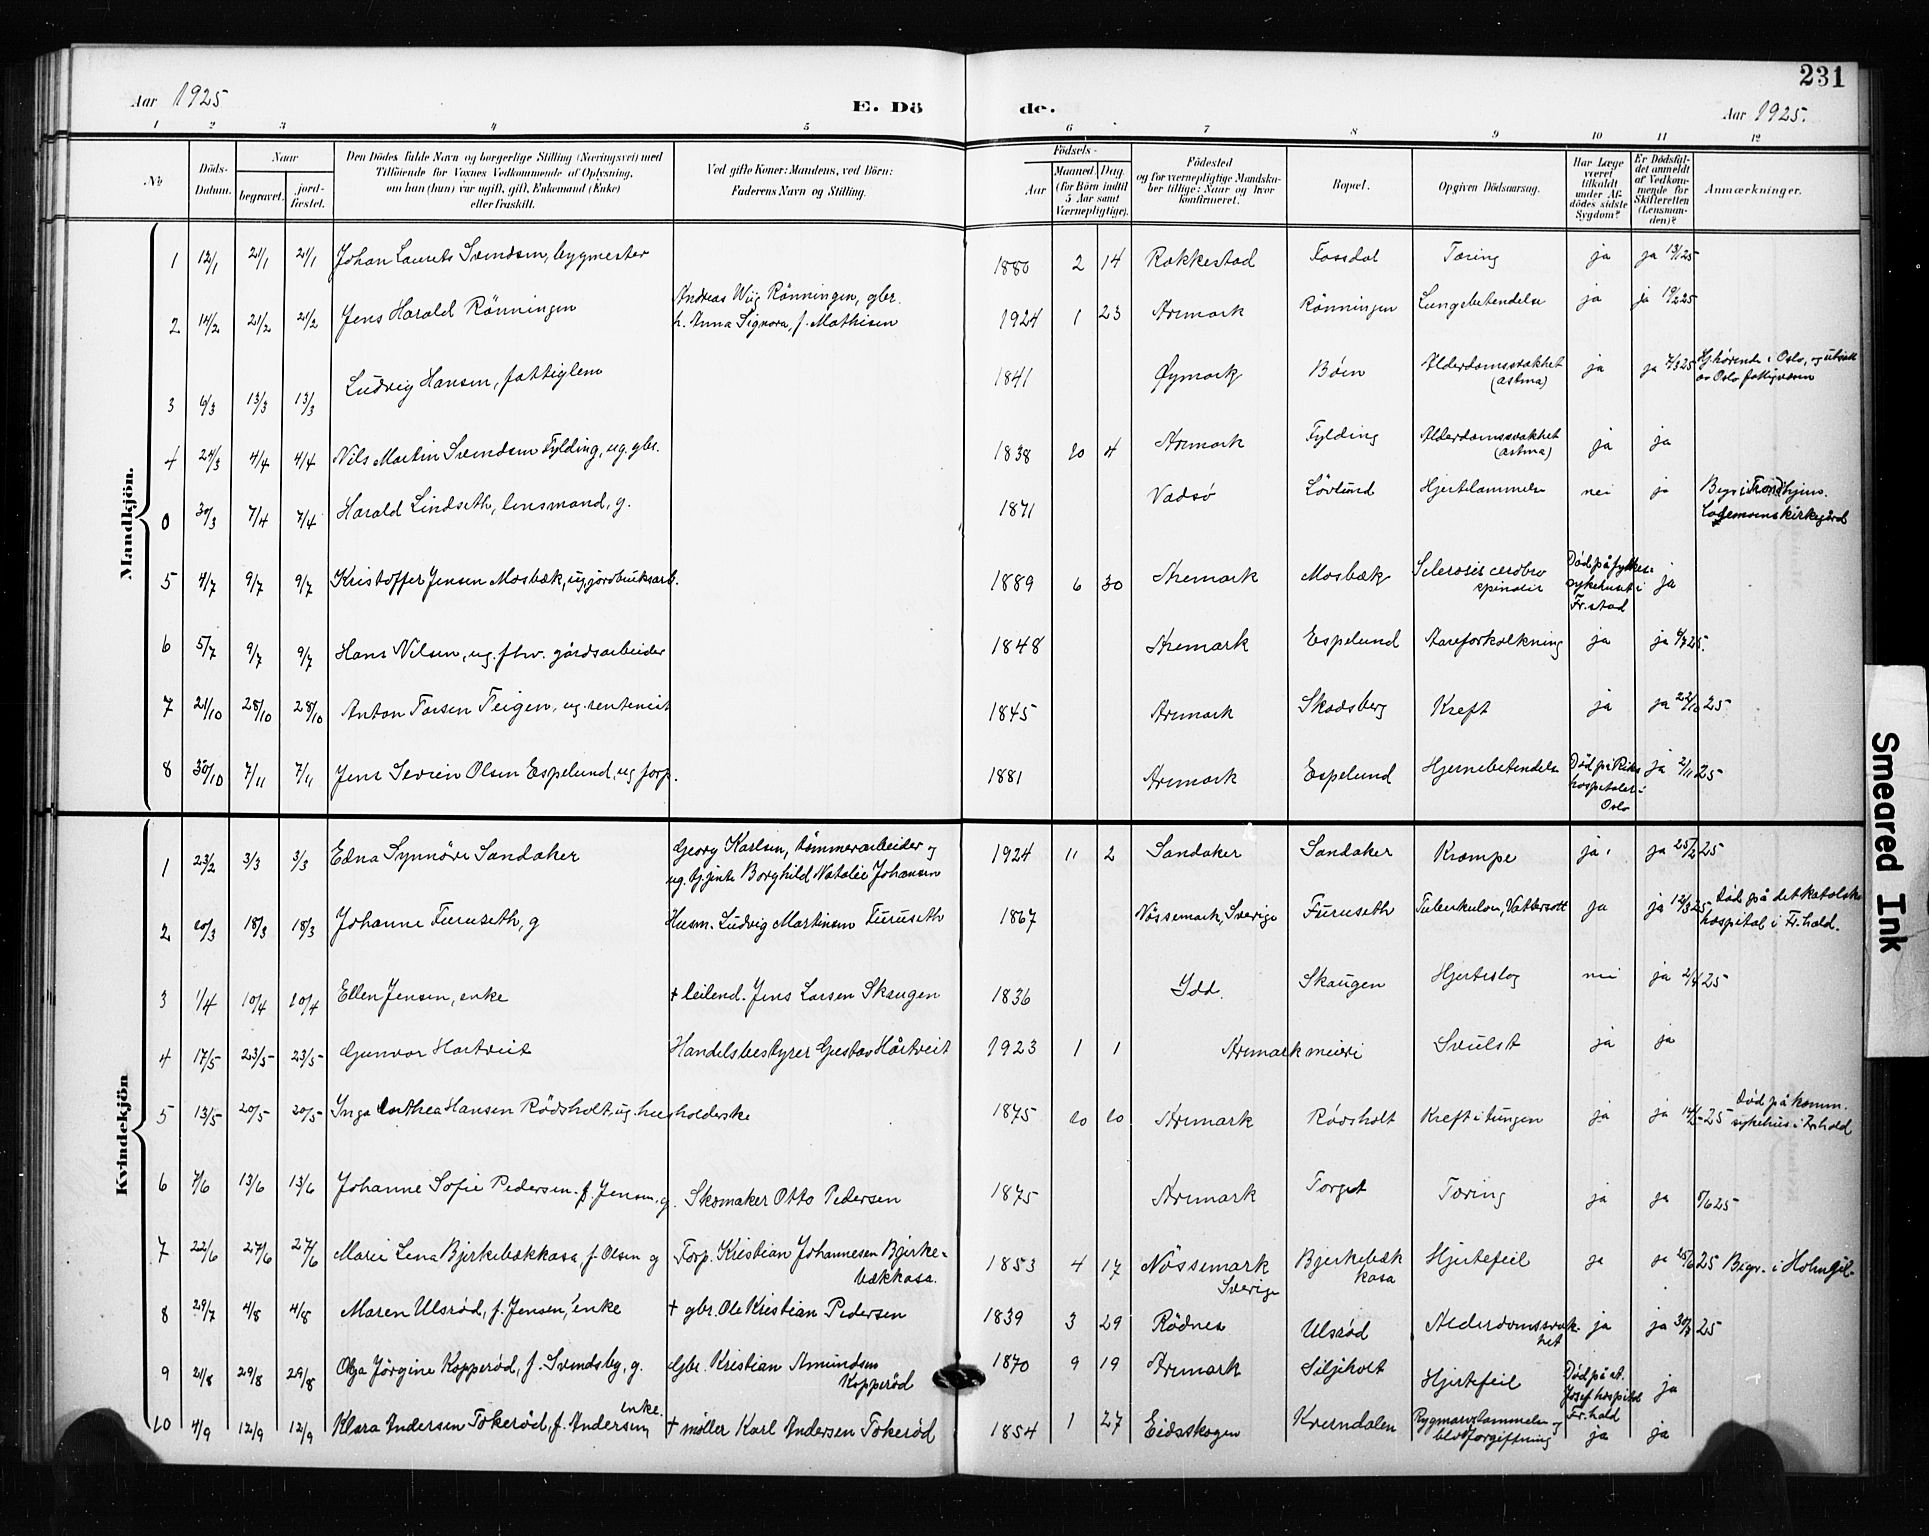 231
Aar 1925
E. Dö de.
Aar 1925.
1 2 3 4 5 6 7 8 9 10 11 12
No
Döds-Datum.
Naar
begravet.
jord-fæstet.
Den Dödes fulde Navn og borgerlige Stilling (Næringsvei) med
Tilföiende for Voxnes Vedkommende af Oplysning,
om han (hun) var ugift, gift, Enkemand (Enke)
eller fraskilt.
Ved gifte Koner: Mandens, ved Börn:
Faderens Navn og Stilling.
Födsels-
Aar
Maaned. Dag.
(for Börn indtil
5 Aar samt
Værnepligtige).
Födested
og for værnepligtige Mandska-
ber tillige: Naar og hvor
konfirmeret.
Bopæl.
Opgiven Dödsaarsag.
Har Læge
været
tilkaldt
under Af-
dödes sidste
Sygdom?
Er Dödsfal-
det anmeldt
af Vedkom-
mende for
Skifteretten
(Lensman-
den)?
Anmærkninger.
Mandkjön.
1 12/1 21/1 21/1 Johan Laurits Svendsen, bygmester 1880 2 14 Rakkestad Fossdal Tæring ja ja 13/1 25
2 14/2 21/2 21/2 Jens Harald Rönningen Andreas Wiig Rönningen, gbr.
h. Anna Signora, f. Mathisen 1924 1 23 Aremark Rönningen Lungebetendelse ja ja 19/2 25
3 6/3 13/3 13/3 Ludvig Hansen, fattiglem 1841 Øymark Böen Alderdomssvakhet
(astma) ja ja 7/3 25 Hj.hörende i Oslo, og utsatt
av Oslo fattigvæsen
4 24/3 4/4 4/4 Nils Martin Svendsen Fylding, ug. gbr. 1838 10 4 Aremark Fylding Alderdomssvakhet
(astma) ja ja
0 30/3 7/4 7/4 Harald Lindseth, lensmand, g. 1871 Vadsö Lövlund Hjertelammelse nei ja Begr. i Trondhjem.
Lademoens kirkegård
5 4/7 9/7 9/7 Kristoffer Jensen Mosbæk, ug. jordbruksarb. 1889 6 30 Aremark Mosbæk Sclerosis cerebro
spinalis Död på fylkes-
sykehuset i
Fr.stad ja
6 5/7 9/7 9/7 Hans Nilsen, ug. fhv. gårdsarbeider 1848 Aremark Espelund Aareforkalkning ja ja 6/7 25.
7 21/10 28/10 28/10 Anton Larsen Teigen, ug. rentenist 1845 Aremark Skodsberg Kreft ja ja 22/10 25
8 30/10 7/11 7/11 Jens Severin Olsen Espelund, ug forp. 1881 Aremark Espelund Hjernebetendelse Död på Riks
hospitalet i
Oslo ja 2/11 25
Kvindekjön
1 23/2 3/3 3/3 Edna Synnöve Sandaker Georg Karlsen, tömmerarbeider og
ug. tj.jente Borghild Natalie Johansen 1924 11 2 Sandaker Sandaker Krampe ja ja 25/2 25
2 10/3 18/3 18/3 Johanne Furuseth, g Husm. Ludvig Martinsen Furuseth 1867 Nössemark, Sverige Furuseth Tuberkulose, Vattersott ja ja 12/3 25 Död på det katolske
hospital i Fr.hald.
3 1/4 10/4 10/4 Ellen Jensen, enke + leilend. Jens Larsen Skaugen 1836 Idd. Skaugen Hjerteslag nei ja 2/4 25
4 17/5 23/5 23/5 Gunvor Hartveit Handelsbestyrer Gustav Hartveit 1923 1 1 Aremark meieri Svulst ja ja
5 13/5 20/5 20/5 Inga Dorthea Hansen Rödsholt, ug. husholderske 1875 10 10 Aremark Rödsholt Kreft i tungen ja ja 14/5 25 Död på komm.
sykehus i Fr.hald
6 7/6 13/6 13/6 Johanne Sofie Pedersen f. Jensen, g. Skomaker Otto Pedersen 1875 Aremark Torget Tæring ja ja 7/6 25
7 22/6 27/6 27/6 Marie Lena Bjerkebækkasa, f. Olsen g Forp. Kristian Johannesen Bjerke-
bækkasa. 1853 4 17 Nössemark
Sverige Bjerkebæk
kasa Hjertefeil ja ja 25/6 25 Begr. i Holmgil.
8 29/7 4/8 4/8 Maren Ulsröd, f. Jensen, enke + gbr. Ole Kristian Pedersen 1839 3 29 Rödnes Ulsröd Alderdomssvak-
het ja ja 30/7 25
9 21/8 29/8 29/8 Olga Jörgine Kopperöd, f. Svendsby, g. Gbr. Kristian Amundsen
Kopperöd 1870 9 19 Aremark Siljeholt Hjertefeil Död på st.
Josef hospital
Fr.hald ja
10 4/9 12/9 12/9 Klara Andersen Tokeröd, f. Andersen, enke. + möller Karl Andersen Tokeröd 1854 1 27 Eidsskogen Kverndalen Rygmarvslammelse og
blodforgiftning ja ja
Smeared Ink